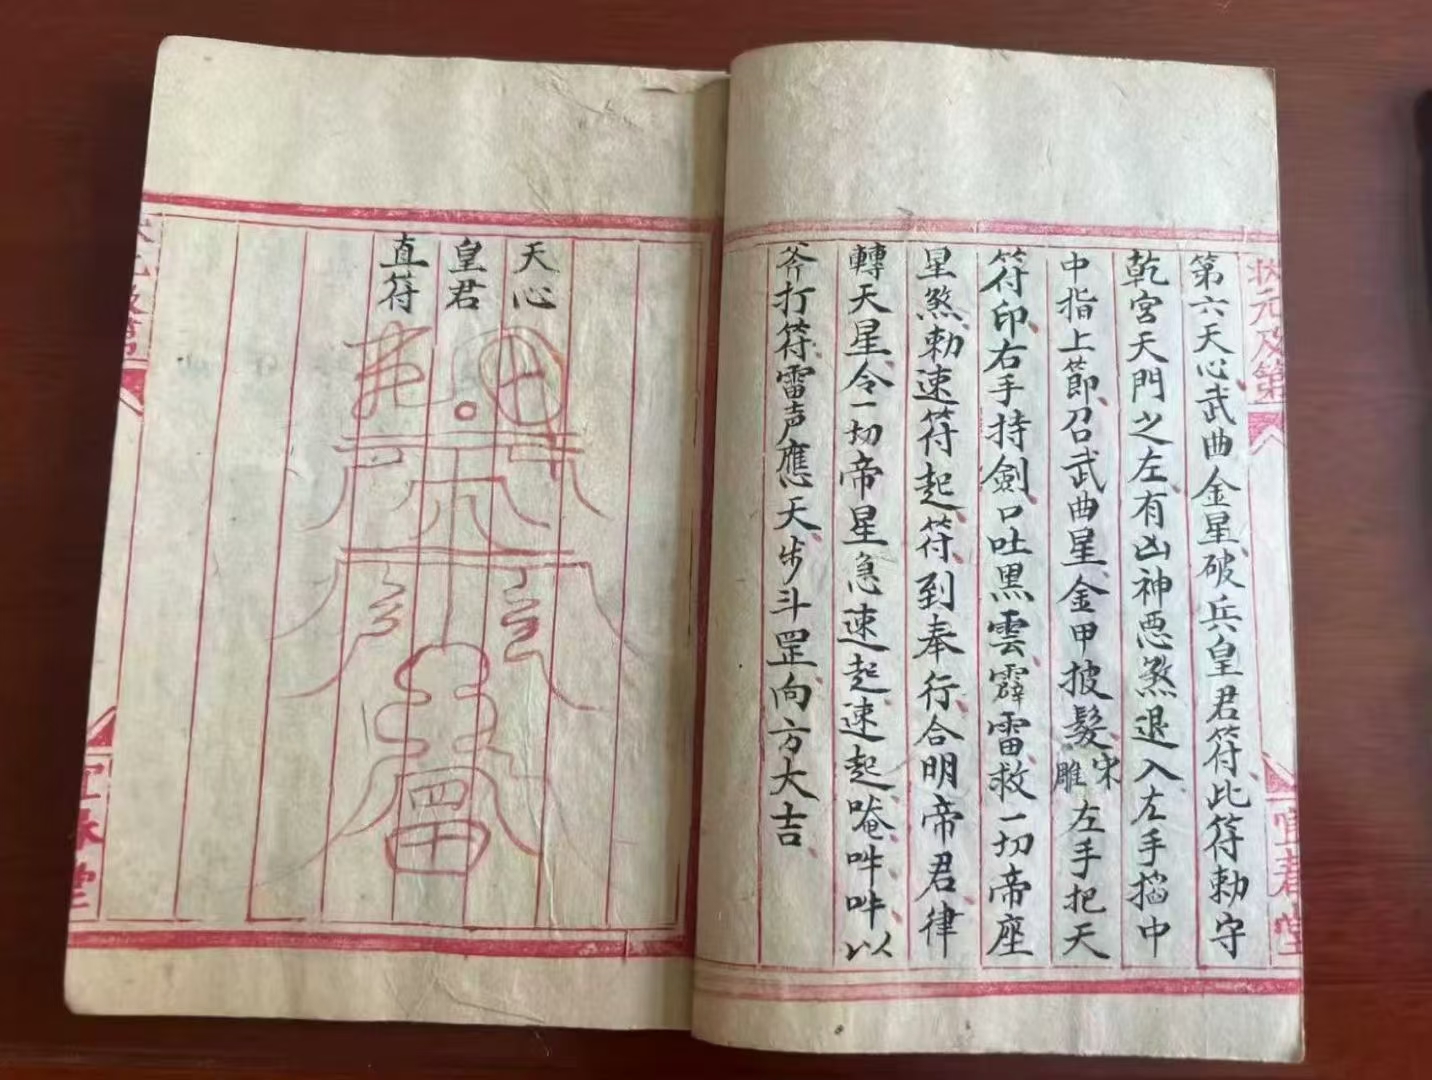 状元及第
宜春堂
第六天心武曲金星破兵皇君符此符勅守
乾宮天門之左有凶神惡煞退入左手搯中
中指上節召武曲星金甲披髮宋雕左手把天
符印右手持劍口吐黑雲霹雷救一切帝座
星煞勅速符起符到奉行合明帝君律
轉天星令一切帝星急速起速起唵吽吽以
斧打符雷声應天步斗罡向方大吉
天心
皇君
直符